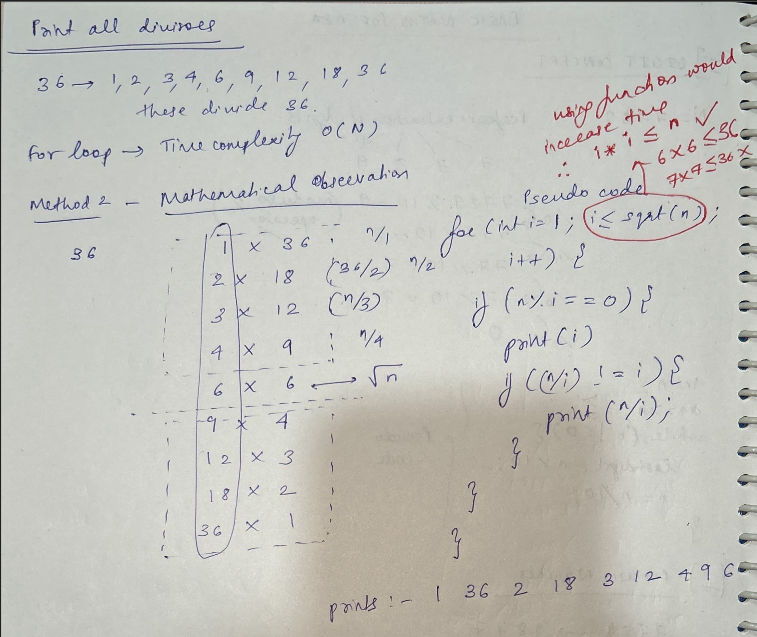 Print all divisors
36 → 1, 2, 3, 4, 6, 9, 12, 18, 36
these divide 36.
For loop → Time complexity O(N)
Method 2 - Mathematical Observation
36
1 × 36 n/1
2 × 18 (36/2) n/2
3 × 12 (n/3)
4 × 9 n/4
6 × 6 ⟷ √n
9 × 4
12 × 3
18 × 2
36 × 1
using function would
increase time
∴ i * i ≤ n ✓
6×6 ≤ 36
7×7 ≤ 36 ×
Pseudo code
for (int i = 1 ; i ≤ sqrt(n) ;
i++) {
if (n % i == 0) {
print (i)
if ((n/i) != i) {
print (n/i);
}
}
}
prints :- 1 36 2 18 3 12 4 9 6